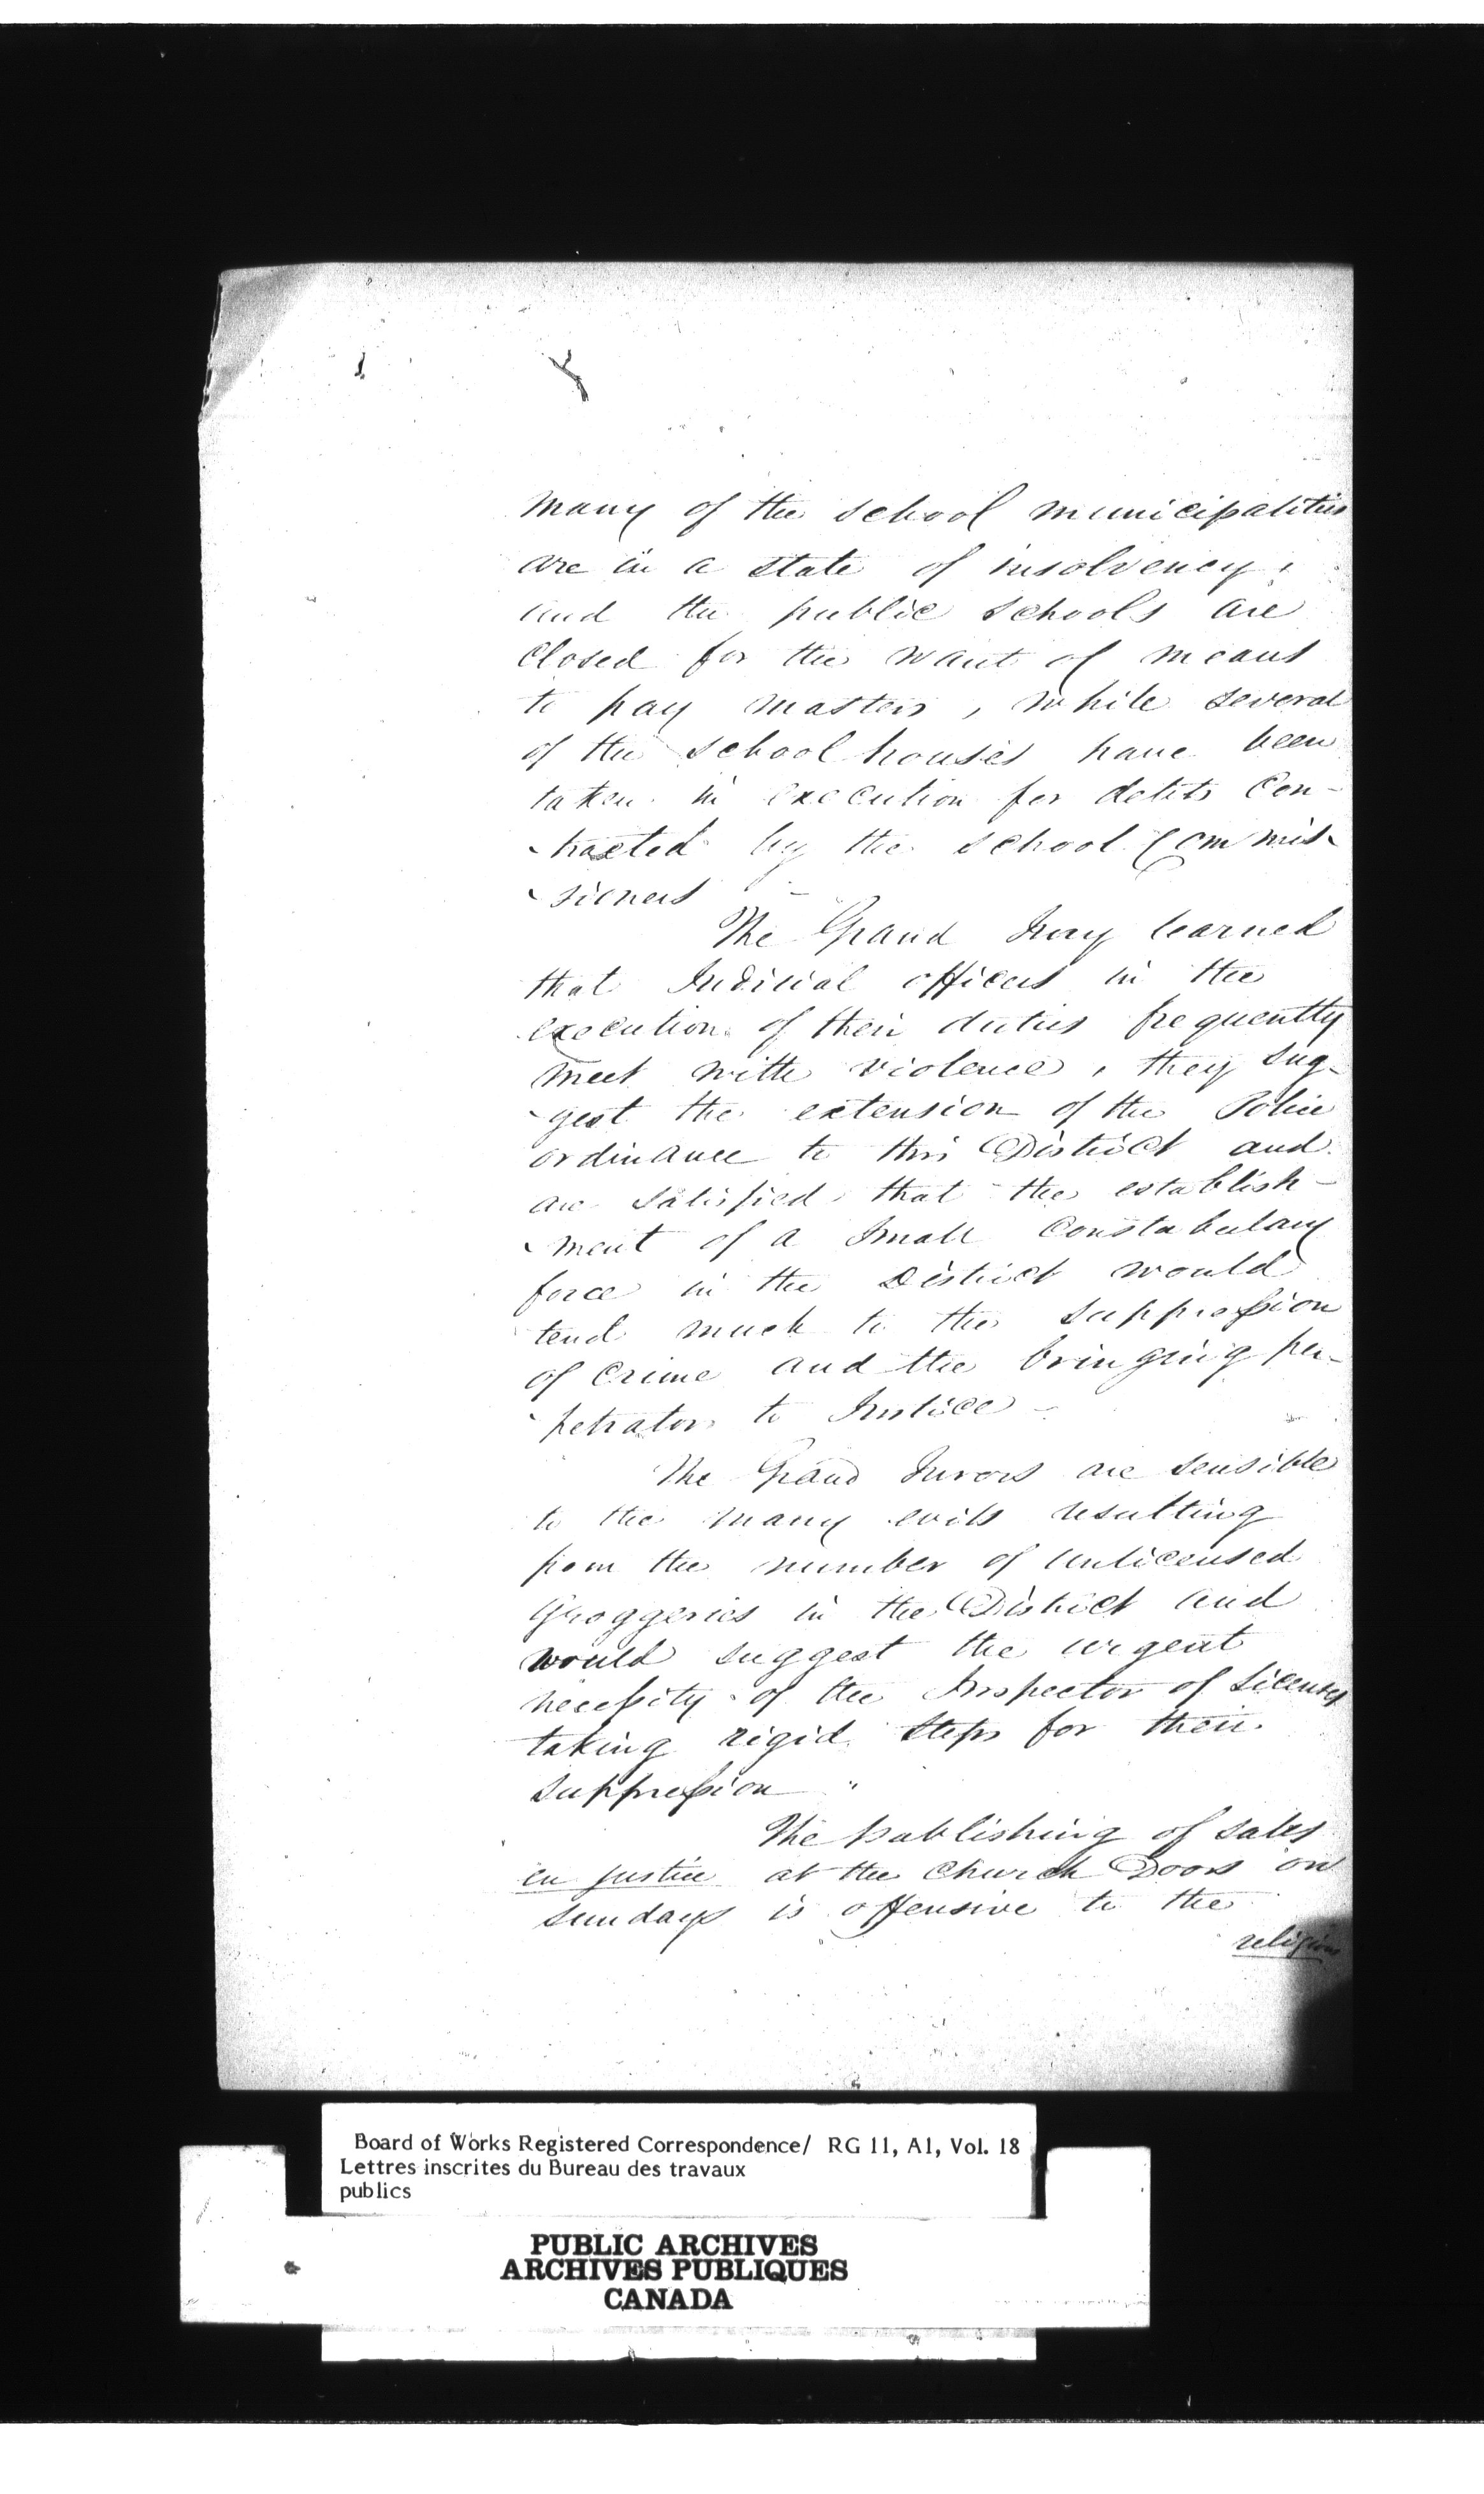 many of the school municipalities
are in a state of insolvency,
and the public schools are
closed for the want of means
to pay masters, while several
of the school houses have been
taken in execution for debts con-
-tracted by the school commis-
-sioners -
The Grand Jury learned
that Judicial officers in the
execution of their duties frequently
meet with violence, they sug-
-gest the extension of the Police
ordinance to this District and
are satisfied that the establish-
-ment of a small constabulary
force in the District would
tend much to the suppression
of crime and the bringing per-
-petrators to Justice -
The Grand Jurors are sensible
to the many evils resulting
from the number of unlicensed
Groggeries in the District and
would suggest the urgent
necessity of the Inspector of Licenses
taking rigid steps for their
suppression "
The publishing of sales
en justice at the Church Doors on
sundays is offensive to the
religious
Board of Works Registered Correspondence/ RG 11, A1, Vol. 18
Lettres inscrites du Bureau des travaux
publics
PUBLIC ARCHIVES
ARCHIVES PUBLIQUES
CANADA